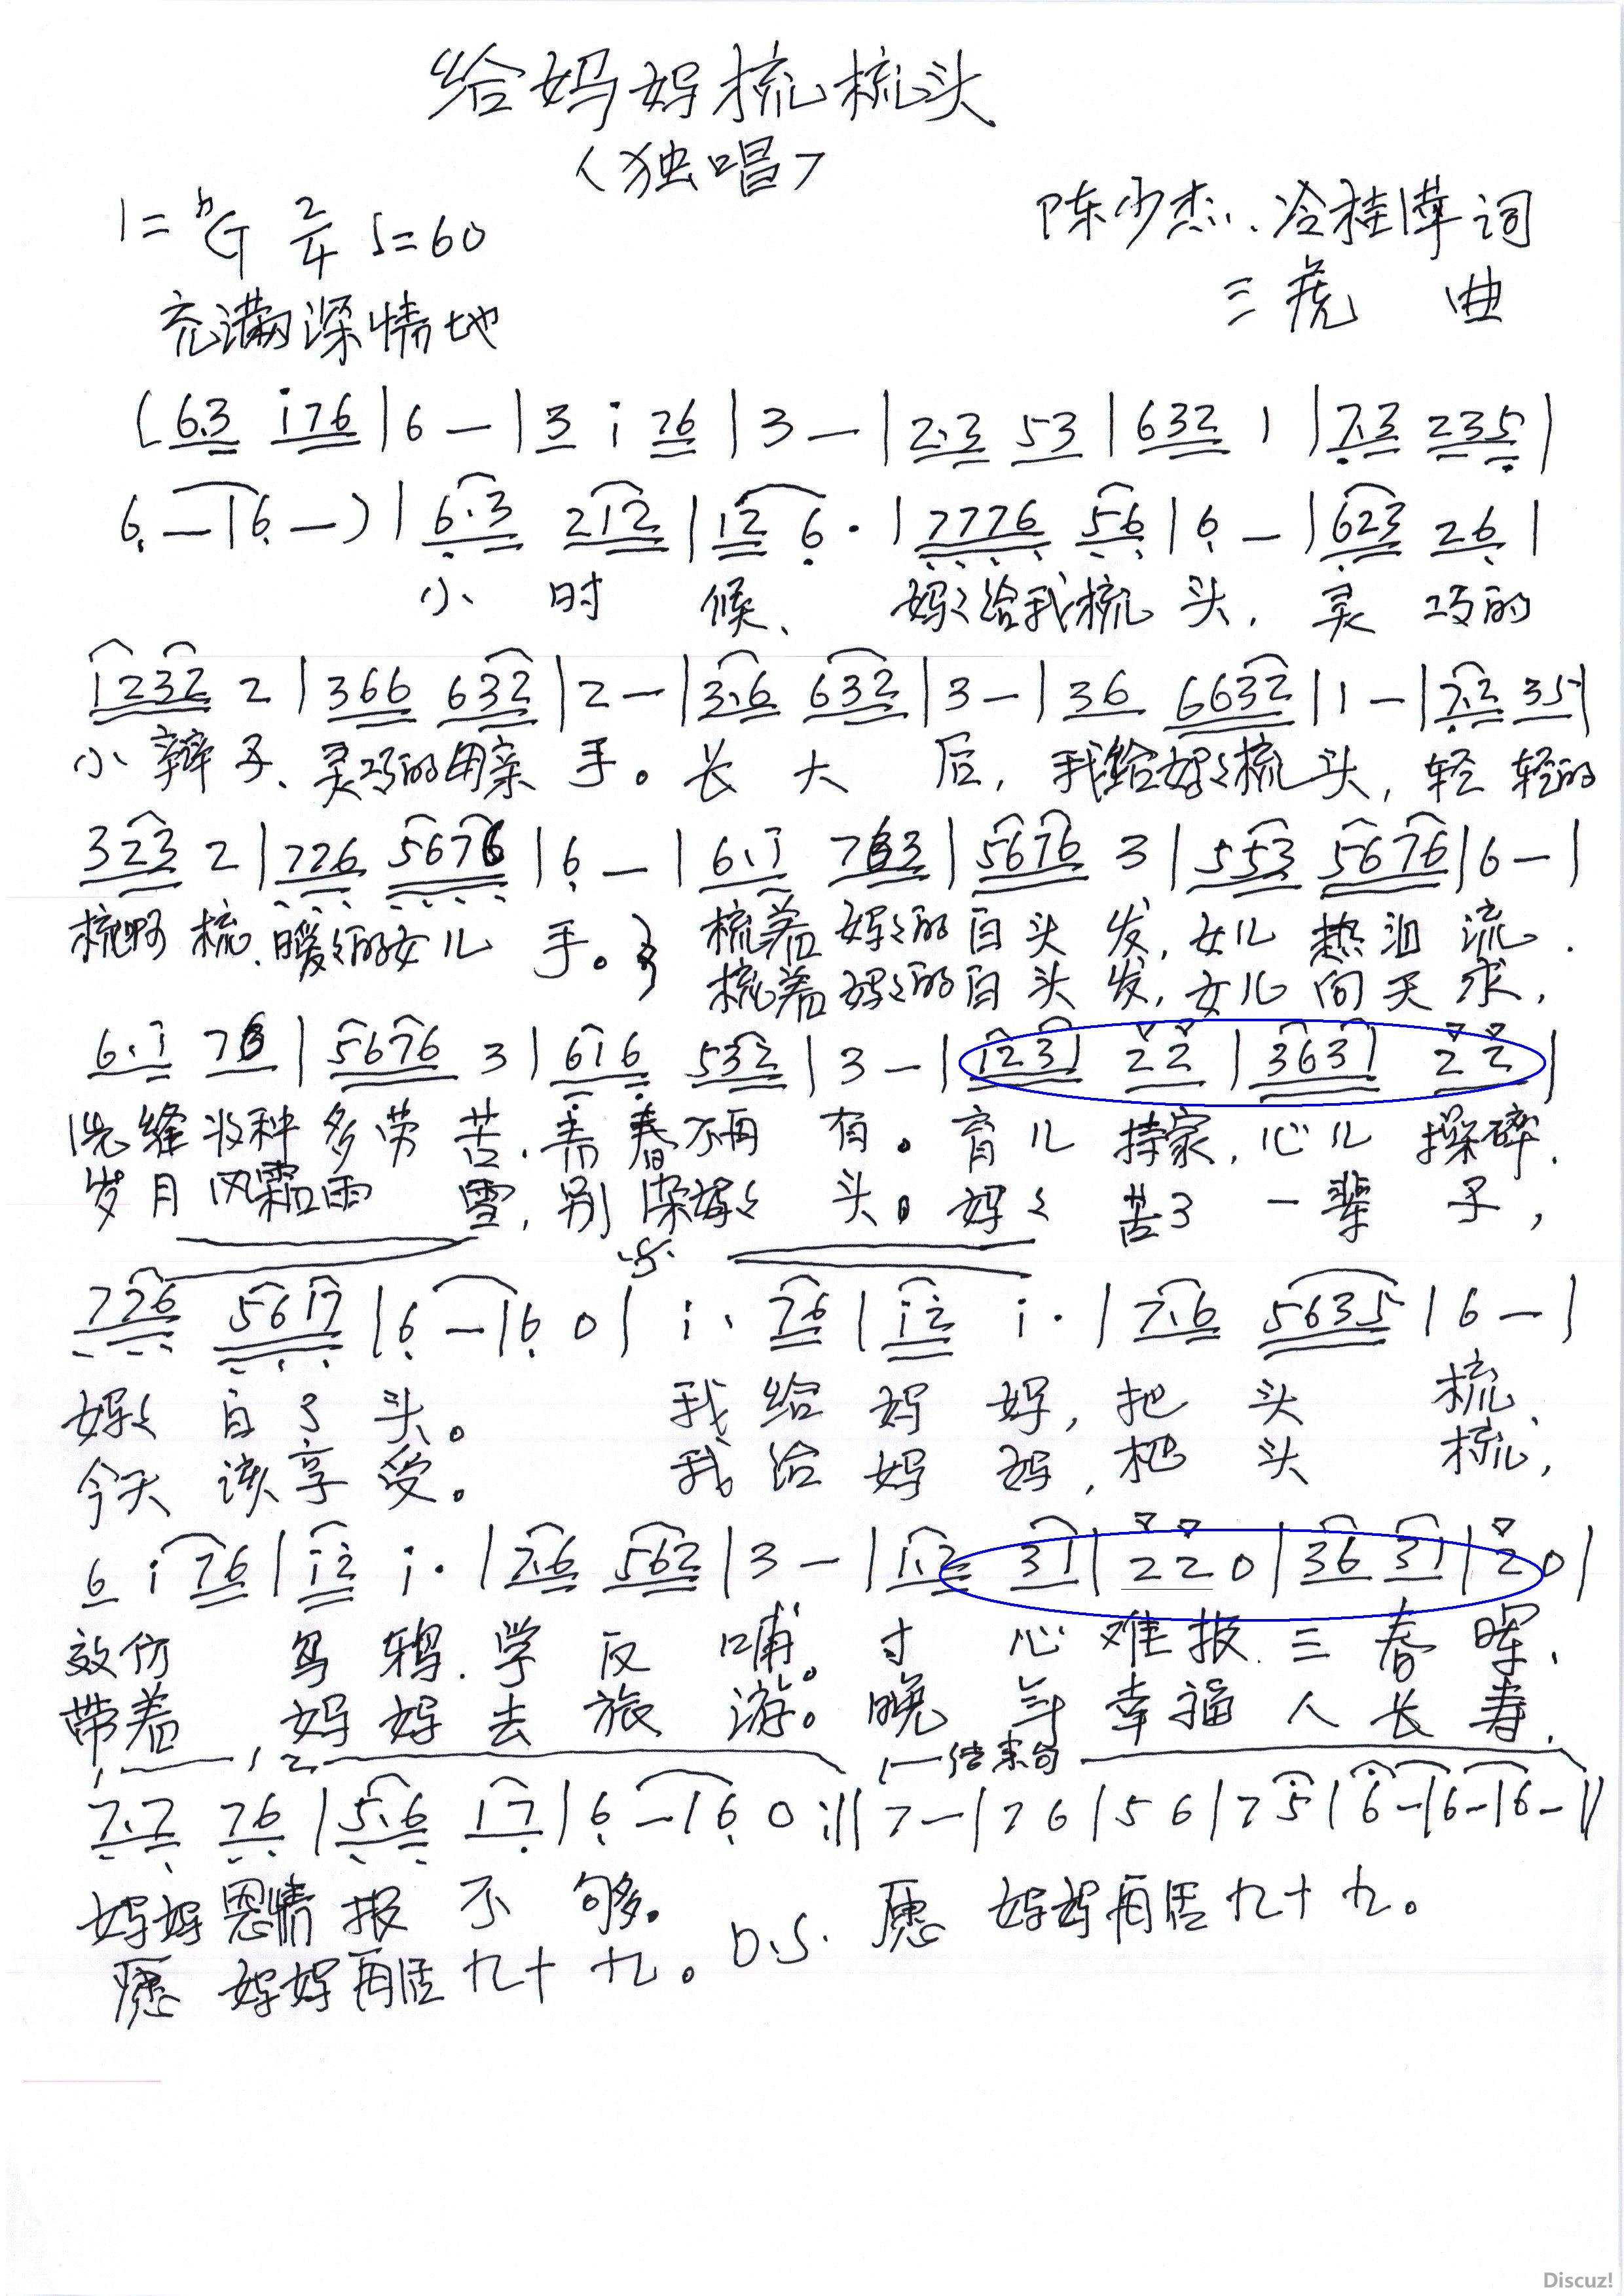 给妈妈梳梳头
（独唱）
1=♭G 2/4 ♩=60
陈少杰、冷桂萍词
充满深情地
三虎 曲
(6.3 i76|6 —|3 i 76|3 —|2.3 53|632 1|7.3 235|
6 —|6 —)|6.3 212|12 6·|7776 56|6 —|623 26|
小 时 候、 妈〻给我梳 头，灵 巧的
1232 2|366 632|2 —|3.6 632|3 —|36 6632|1 —|7.2 35|
小辫子、灵巧的母亲 手。长 大 后，我给妈〻梳 头，轻 轻的
323 2|776 5676|6 —|6.1 763|5676 3|553 5676|6 —|
梳啊 梳、暖〻的女儿 手。 梳着 妈〻的白头 发，女儿 热泪 流.
梳着妈〻的白头 发，女儿 向天 求，
6.1 76|5676 3|616 532|3 —|1231 22|3631 22|
洗缝收种 多劳 苦、青春不再 有。育儿 持家，心儿 操碎.
岁月风霜雨 雪，别染妈〻 头。妈〻 苦了 一辈 子，
776 5617|6 —|6 0|i· 76|i2 i·|7.6 5635|6 —|
妈〻 白了 头。 我 给 妈 妈，把 头 梳、
今天 该享 受。 我 给 妈 妈，把 头 梳，
6 i 76|i2 i·|7.6 562|3 —|1.2 31|22 0|36 31|2 0|
效仿 乌鸦.学 反 哺。寸 心难报.三 春 晖、
带着 妈妈去 旅 游。晚 年幸福 人长 寿.
1. 2. 结束句
7.7 76|5.6 17|6 —|6 0:‖7 —|76|56|75|6 —|6 —|6 —‖
妈妈恩情报 不 够。 D.S. 愿 妈妈再活九十九。
愿 妈妈再活九十 九。
Discuz!